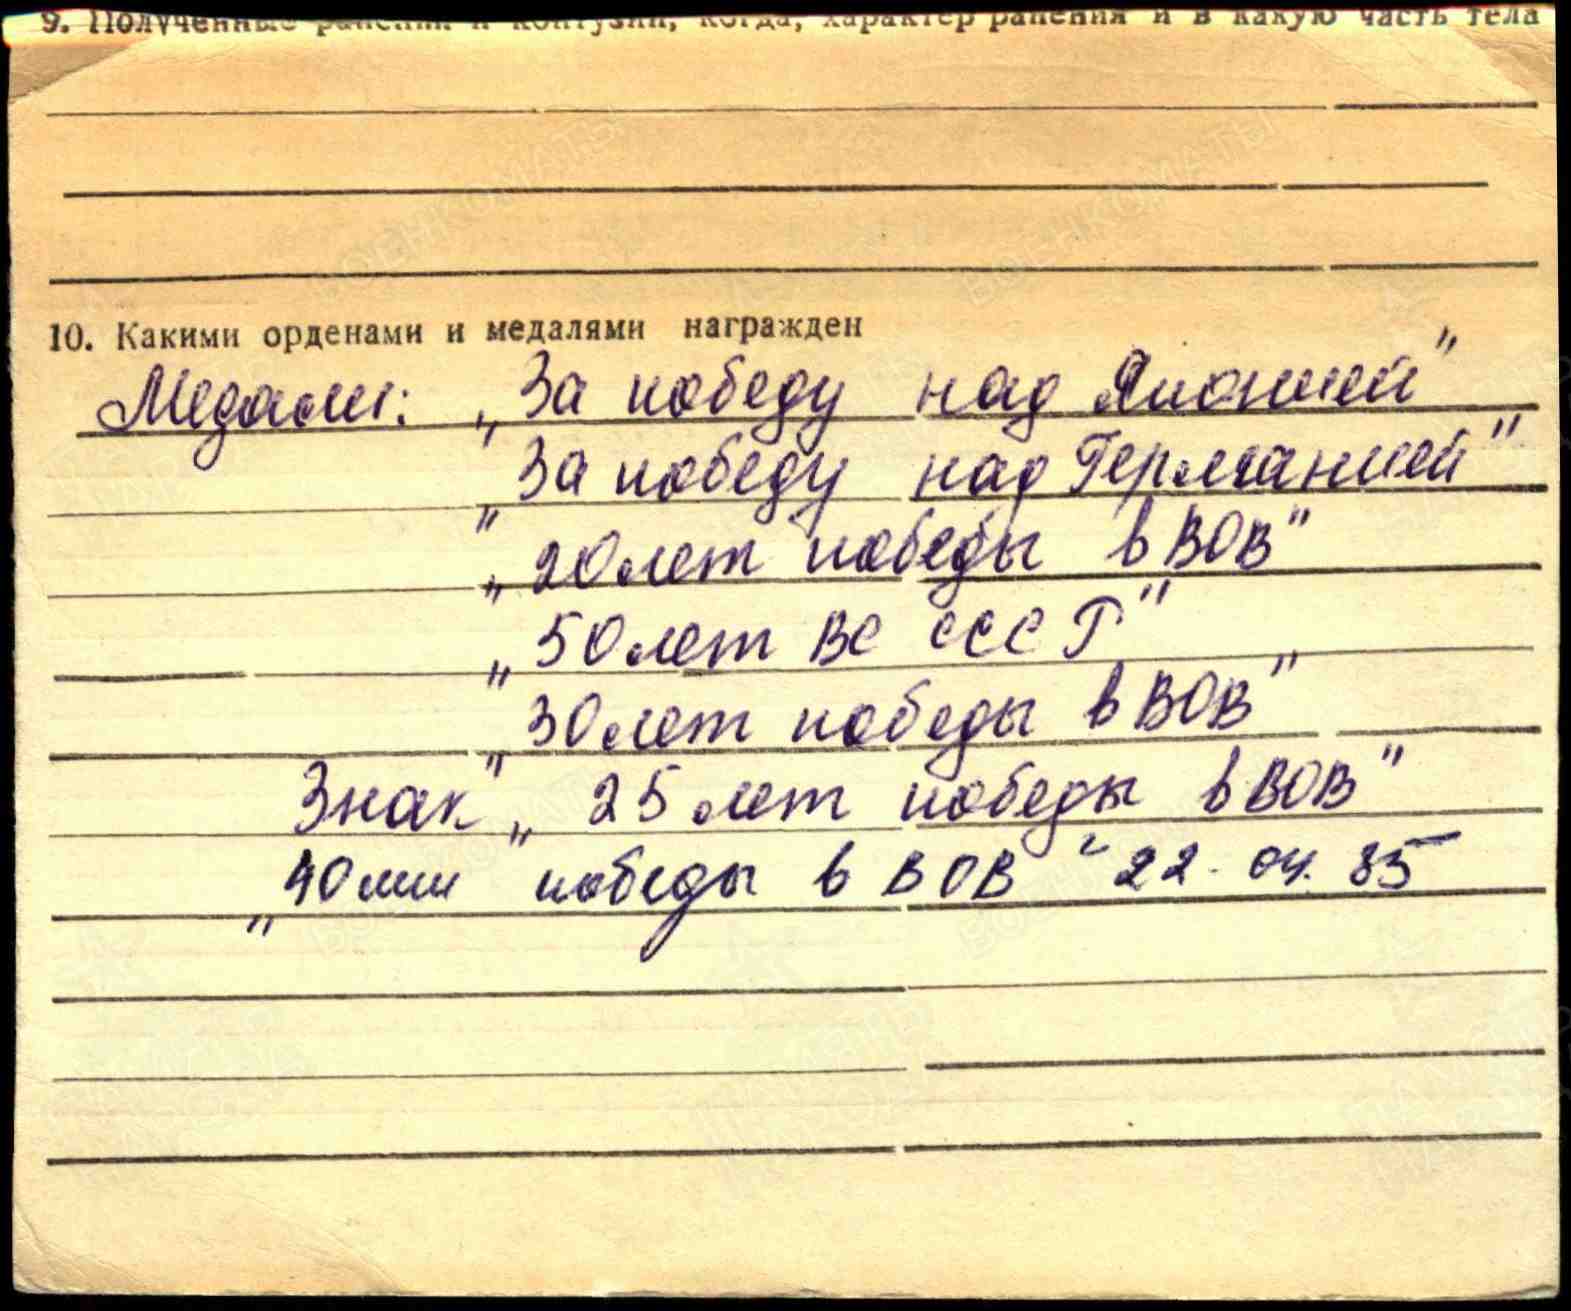 9. Полученные ранения и контузии, когда, характер ранения и в какую часть тела
10. Какими орденами и медалями награжден
Медали: „За победу над Японией"
„За победу над Германией"
„20 лет победы в ВОВ"
„50 лет ВС СССР"
„30 лет победы в ВОВ"
Знак „25 лет победы в ВОВ"
„40 лет победы в ВОВ" 22.04.85
ВОЕНКОМАТЫ
ВОЕНКОМАТЫ